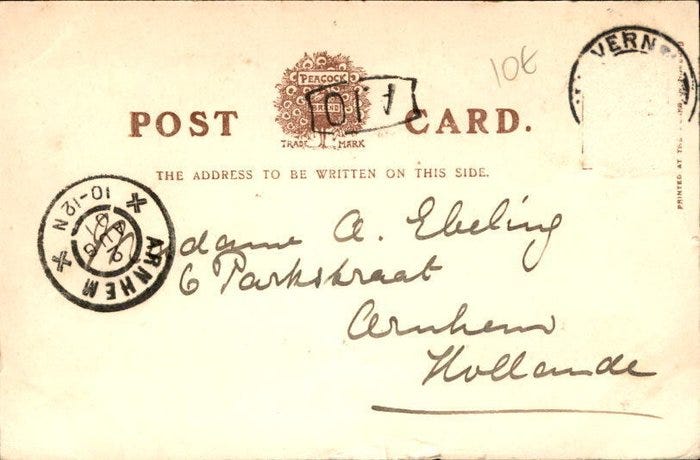 10€
VERN
PEACOCK
BRAND
TRADE MARK
POST CARD.
THE ADDRESS TO BE WRITTEN ON THIS SIDE.
PRINTED AT THE
ARNHEM
10-12 N
AUG
dame A. Ebeling
6 Parkstraat
Arnhem
Hollande